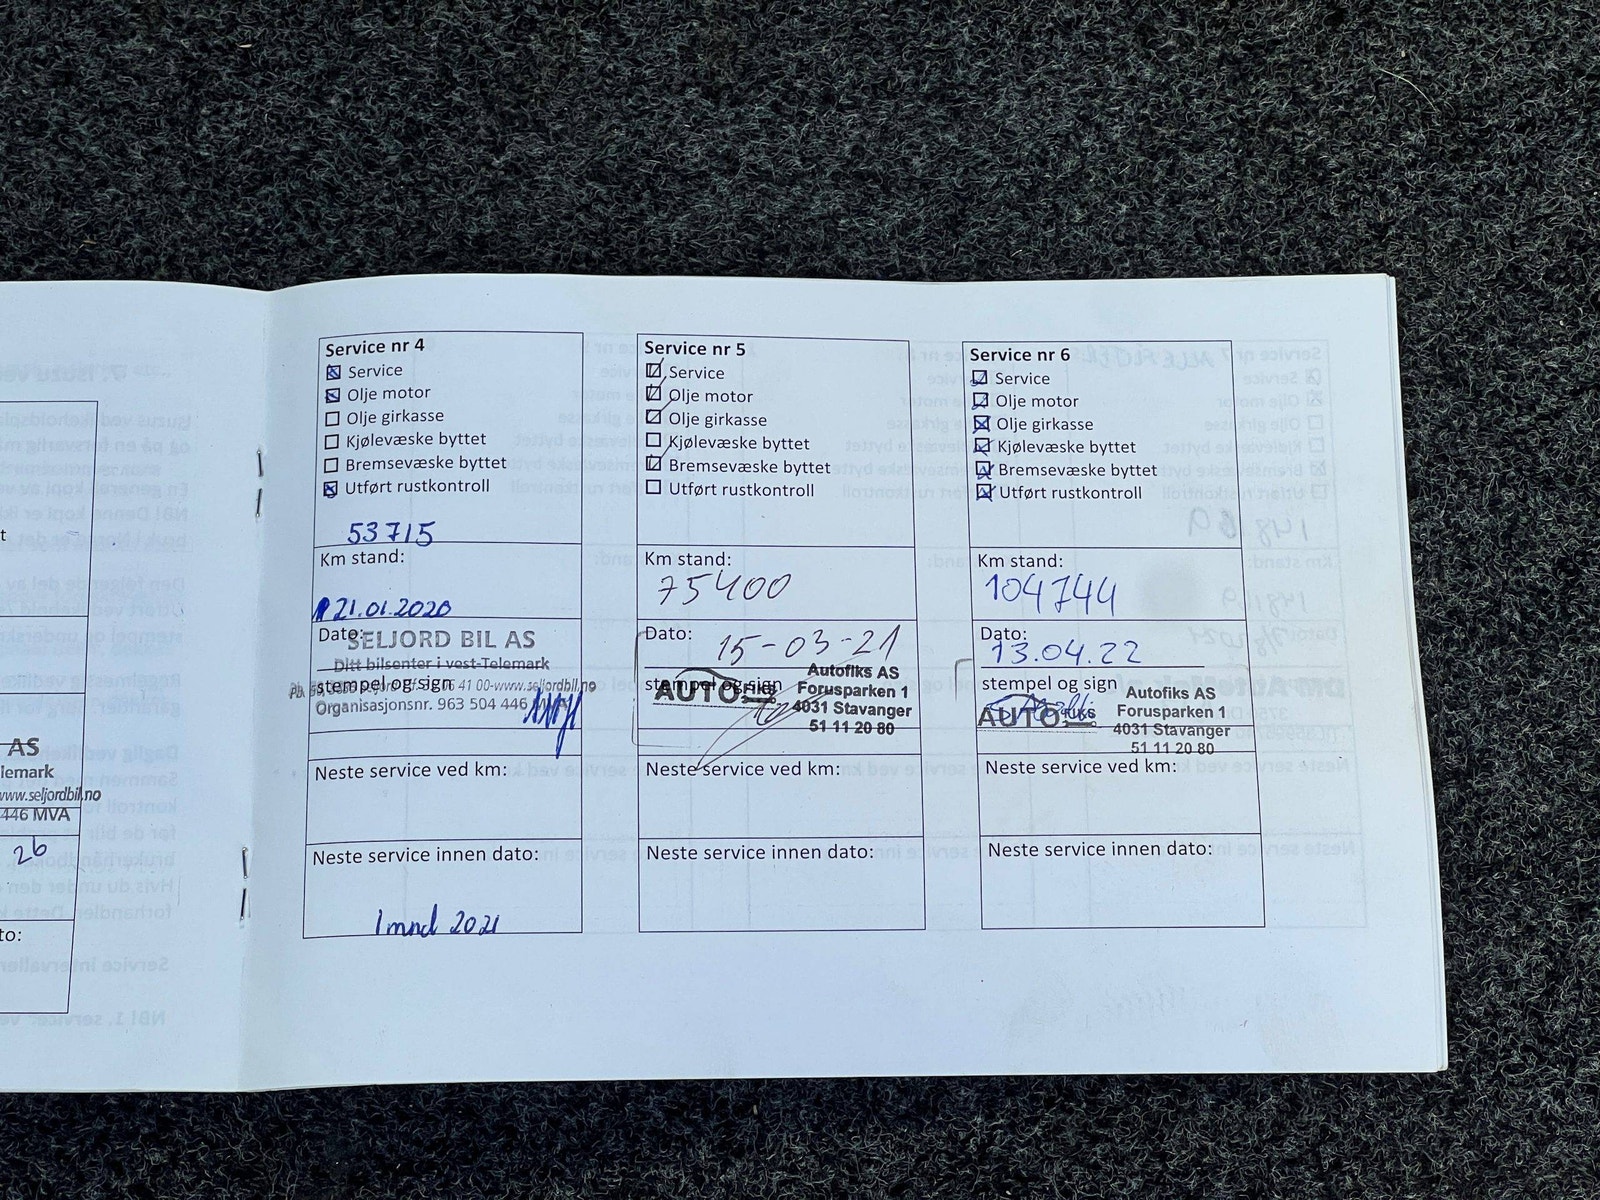 t
AS
lemark
www.seljordbil.no
446 MVA
26
to:
Service nr 4
Service
Olje motor
Olje girkasse
Kjølevæske byttet
Bremsevæske byttet
Utført rustkontroll
53715
Km stand:
21.01.2020
Dato:
SELJORD BIL AS
Ditt bilsenter i vest-Telemark
stempel og sign
41 00-www.seljordbil.no
Organisasjonsnr. 963 504 446 MVA
Neste service ved km:
Neste service innen dato:
1 mnd 2021
Service nr 5
Service
Olje motor
Olje girkasse
Kjølevæske byttet
Bremsevæske byttet
Utført rustkontroll
Km stand:
75400
Dato:
15-03-21
stempel og sign
AUTOfiks
Autofiks AS
Forusparken 1
4031 Stavanger
51 11 20 80
Neste service ved km:
Neste service innen dato:
Service nr 6
Service
Olje motor
Olje girkasse
Kjølevæske byttet
Bremsevæske byttet
Utført rustkontroll
Km stand:
104744
Dato:
13.04.22
stempel og sign
AUTOfiks
Autofiks AS
Forusparken 1
4031 Stavanger
51 11 20 80
Neste service ved km:
Neste service innen dato: